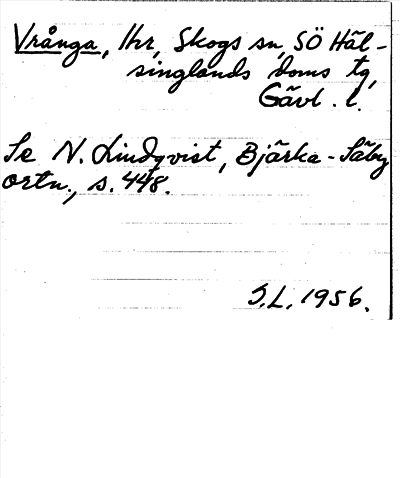 Vrånga, Ihr, Skogs sn, SÖ Häl-
singlands doms tg,
Gävl. l.
Se N. Lindqvist, Bjärka-Säby
ortn., s. 448.
S.L. 1956.